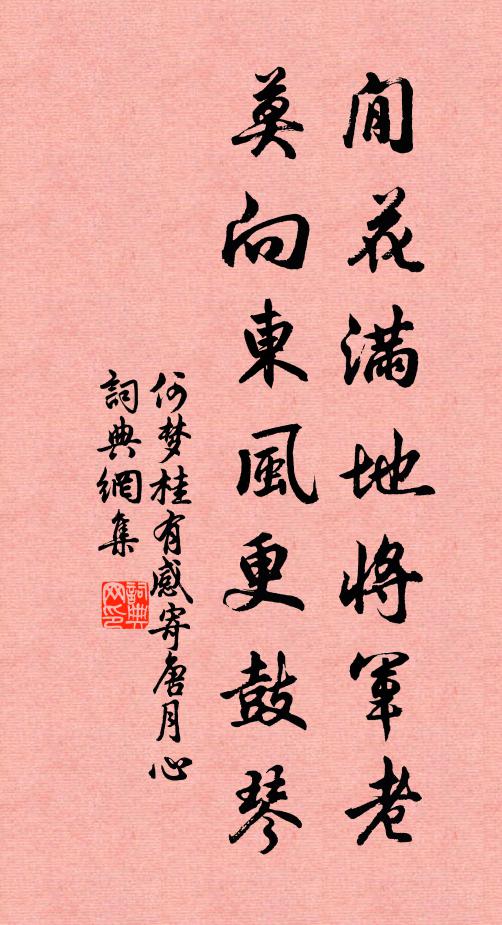 閒花滿地將軍老
莫向東風更鼓琴
何梦桂有感寄唐月心
詞典網集
詞典网印